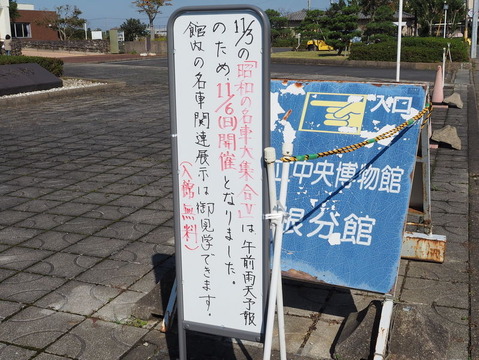 11/3の「昭和の名車大集合Ⅴ」は午前雨天予報
のため、11/6(日)開催となりました。
館内の名車関連展示は御見学できます。
(入館無料)
入口
中央博物館
根分館